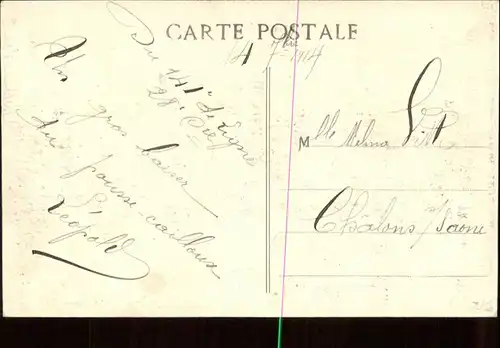 CARTE POSTALE
14 7bre 1914
Du 141e de Ligne
28e Cie
Un gros baiser
du pousse cailloux
Léopold
Mlle Melina
Châlons s/Saone